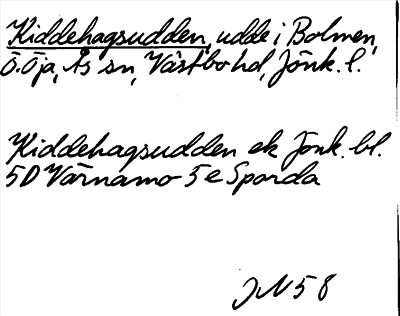 Kiddehagsudden, udde i Bolmen,
Ö. Öja, Ås sn, Västbo hd, Jönk. l.
Kiddehagsudden ek Jönk. bl.
5D Värnamo 5 e Sporda
JN 58